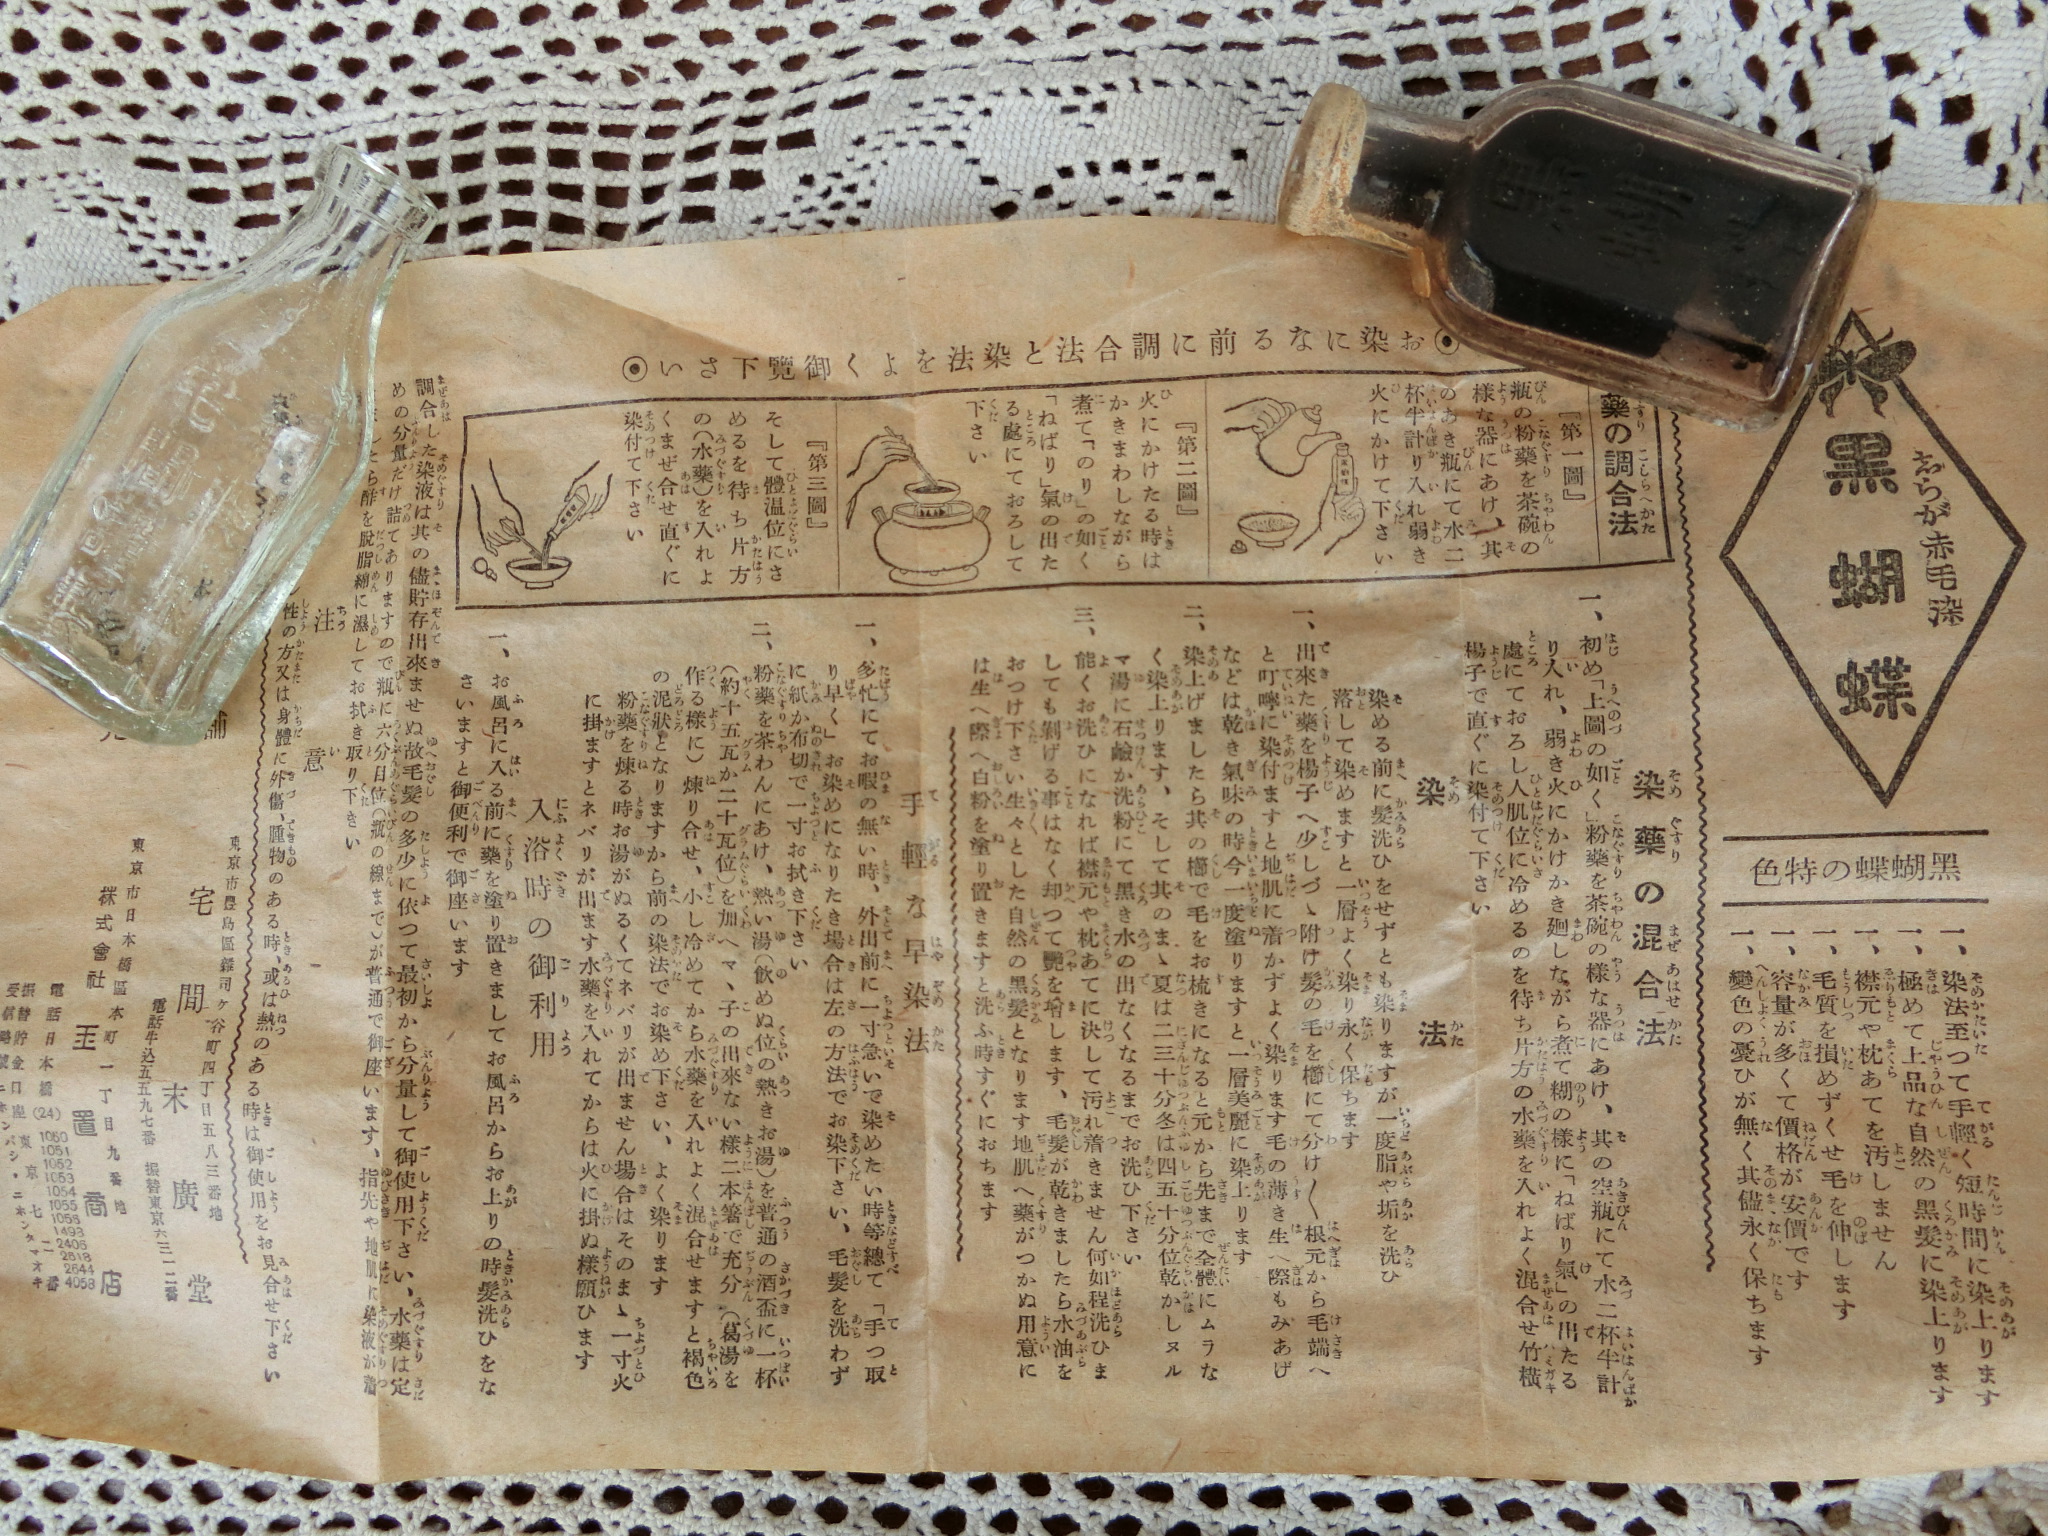 しらが赤毛染
黒蝴蝶
黑蝴蝶の特色
一、染法至つて手輕く短時間に染上ります
一、極めて上品な自然の黒髪に染上ります
一、襟元や枕あてを汚しません
一、毛質を損めずくせ毛を伸します
一、容量が多くて價格が安價です
一、變色の憂ひが無く其儘永く保ちます
お染になる前に調合法と染法をよく御覽下さい
藥の調合法
『第一圖』
瓶の粉藥を茶碗の
様な器にあけ、其
のあき瓶にて水二
杯半計り入れ弱き
火にかけて下さい
『第二圖』
火にかけたる時は
かきまわしながら
煮て「のり」の如く
「ねばり」氣の出た
る處にておろして
下さい
『第三圖』
そして體温位にさ
めるを待ち片方
の(水藥)を入れよ
くまぜ合せ直ぐに
染付て下さい
染藥の混合法
一、初め「上圖の如く」粉藥を茶碗の様な器にあけ、其の空瓶にて水二杯半計
り入れ、弱き火にかけかき廻しながら煮て糊の様に「ねばり氣」の出たる
處にておろし人肌位に冷めるのを待ち片方の水藥を入れよく混合せ竹横
楊子で直ぐに染付て下さい
染法
染める前に髪洗ひをせずとも染りますが一度脂や垢を洗ひ
落して染めますと一層よく染り永く保ちます
一、出來た藥を楊子へ少しづゝ附け髪の毛を櫛にて分け〱根元から毛端へ
と叮嚀に染付ますと地肌に着かずよく染ります毛の薄き生へ際もみあげ
などは乾き氣味の時今一度塗りますと一層美麗に染上ります
二、染上げましたら其の櫛で毛をお梳きになると元から先まで全體にムラな
く染上ります、そして其のまゝ夏は二三十分冬は四五十分位乾かしヌル
マ湯に石鹼か洗粉にて黒き水の出なくなるまでお洗ひ下さい
三、能くお洗ひになれば襟元や枕あてに決して汚れ着きません何如程洗ひま
しても剝げる事はなく却つて艷を増します、毛髪が乾きましたら水油を
おつけ下さい生々とした自然の黒髪となります地肌へ藥がつかぬ用意に
は生へ際へ白粉を塗り置きますと洗ふ時すぐにおちます
手輕な早染法
一、多忙にてお暇の無い時、外出前に一寸急いで染めたい時等總て「手つ取
り早く」お染めになりたき場合は左の方法でお染下さい、毛髪を洗わず
に紙か布切で一寸お拭き下さい
二、粉藥を茶わんにあけ、熱い湯(飲めぬ位の熱きお湯)を普通の酒盃に一杯
(約十五瓦か二十瓦位)を加へマヽ子の出來ない様二本箸で充分(葛湯を
作る様に)煉り合せ、小し冷めてから水藥を入れよく混合せますと褐色
の泥狀となりますから前の染法でお染め下さい、よく染ります
粉藥を煉る時お湯がぬるくてネバリが出ません場合はそのまゝ一寸火
に掛ますとネバリが出ます水藥を入れてからは火に掛ぬ様願ひます
入浴時の御利用
一、お風呂に入る前に藥を塗り置きましてお風呂からお上りの時髪洗ひをな
さいますと御便利で御座います
調合した染液は其の儘貯存出來ませぬ故毛髪の多少に依つて最初から分量して御使用下さい、水藥は定
めの分量だけ詰てありますので瓶に六分目位(瓶の線まで)が普通で御座います、指先や地肌に染液が着
たら酢を脱脂綿に濕してお拭き取り下さい
注意
性の方又は身體に外傷、腫物のある時、或は熱のある時は御使用をお見合せ下さい
東京市豊島區雜司ヶ谷町四丁目五八三番地
舖 宅間末廣堂
電話牛込五五九七番 振替東京六三一二番
東京市日本橋區本町一丁目九番地
株式會社 玉置商店
電話日本橋(24) 1050 1051 1052 1053 1054 1055 1056 1493 2406 2618 2644 4058
振替貯金口座東京七二番